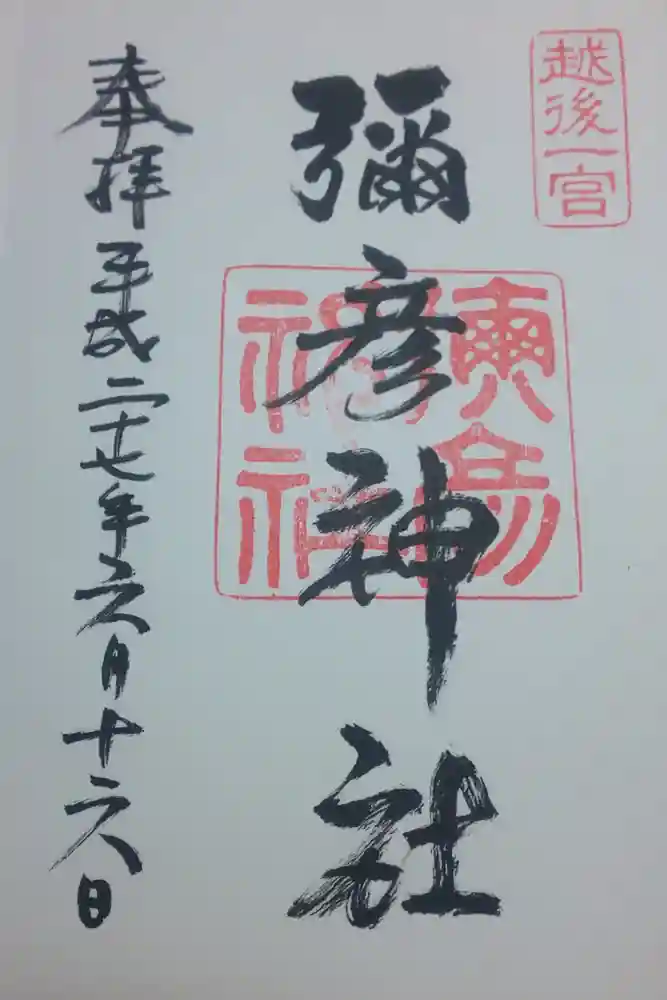 越後一宮
彌彦神社
彌彦神社
奉拝 平成二十七年六月十六日